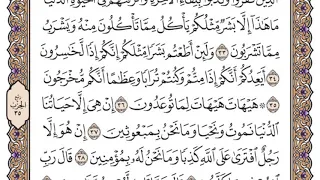 الَّذِينَ كَفَرُوا۟ وَكَذَّبُوا۟ بِلِقَآءِ ٱلْءَاخِرَةِ وَأَتْرَفْنَٰهُمْ فِى ٱلْحَيَوٰةِ ٱلدُّنْيَا
مَا هَٰذَآ إِلَّا بَشَرٌ مِّثْلُكُمْ يَأْكُلُ مِمَّا تَأْكُلُونَ مِنْهُ وَيَشْرَبُ
مِمَّا تَشْرَبُونَ ٣٣ وَلَئِنْ أَطَعْتُم بَشَرًا مِّثْلَكُمْ إِنَّكُمْ إِذًا لَّخَٰسِرُونَ
٣٤ أَيَعِدُكُمْ أَنَّكُمْ إِذَا مِتُّمْ وَكُنتُمْ تُرَابًا وَعِظَٰمًا أَنَّكُم مُّخْرَجُونَ
٣٥ هَيْهَاتَ هَيْهَاتَ لِمَا تُوعَدُونَ ٣٦ إِنْ هِىَ إِلَّا حَيَاتُنَا
ٱلدُّنْيَا نَمُوتُ وَنَحْيَا وَمَا نَحْنُ بِمَبْعُوثِينَ ٣٧ إِنْ هُوَ إِلَّا
رَجُلٌ ٱفْتَرَىٰ عَلَى ٱللَّهِ كَذِبًا وَمَا نَحْنُ لَهُۥ بِمُؤْمِنِينَ ٣٨ قَالَ رَبِّ
الحزب
٣٥